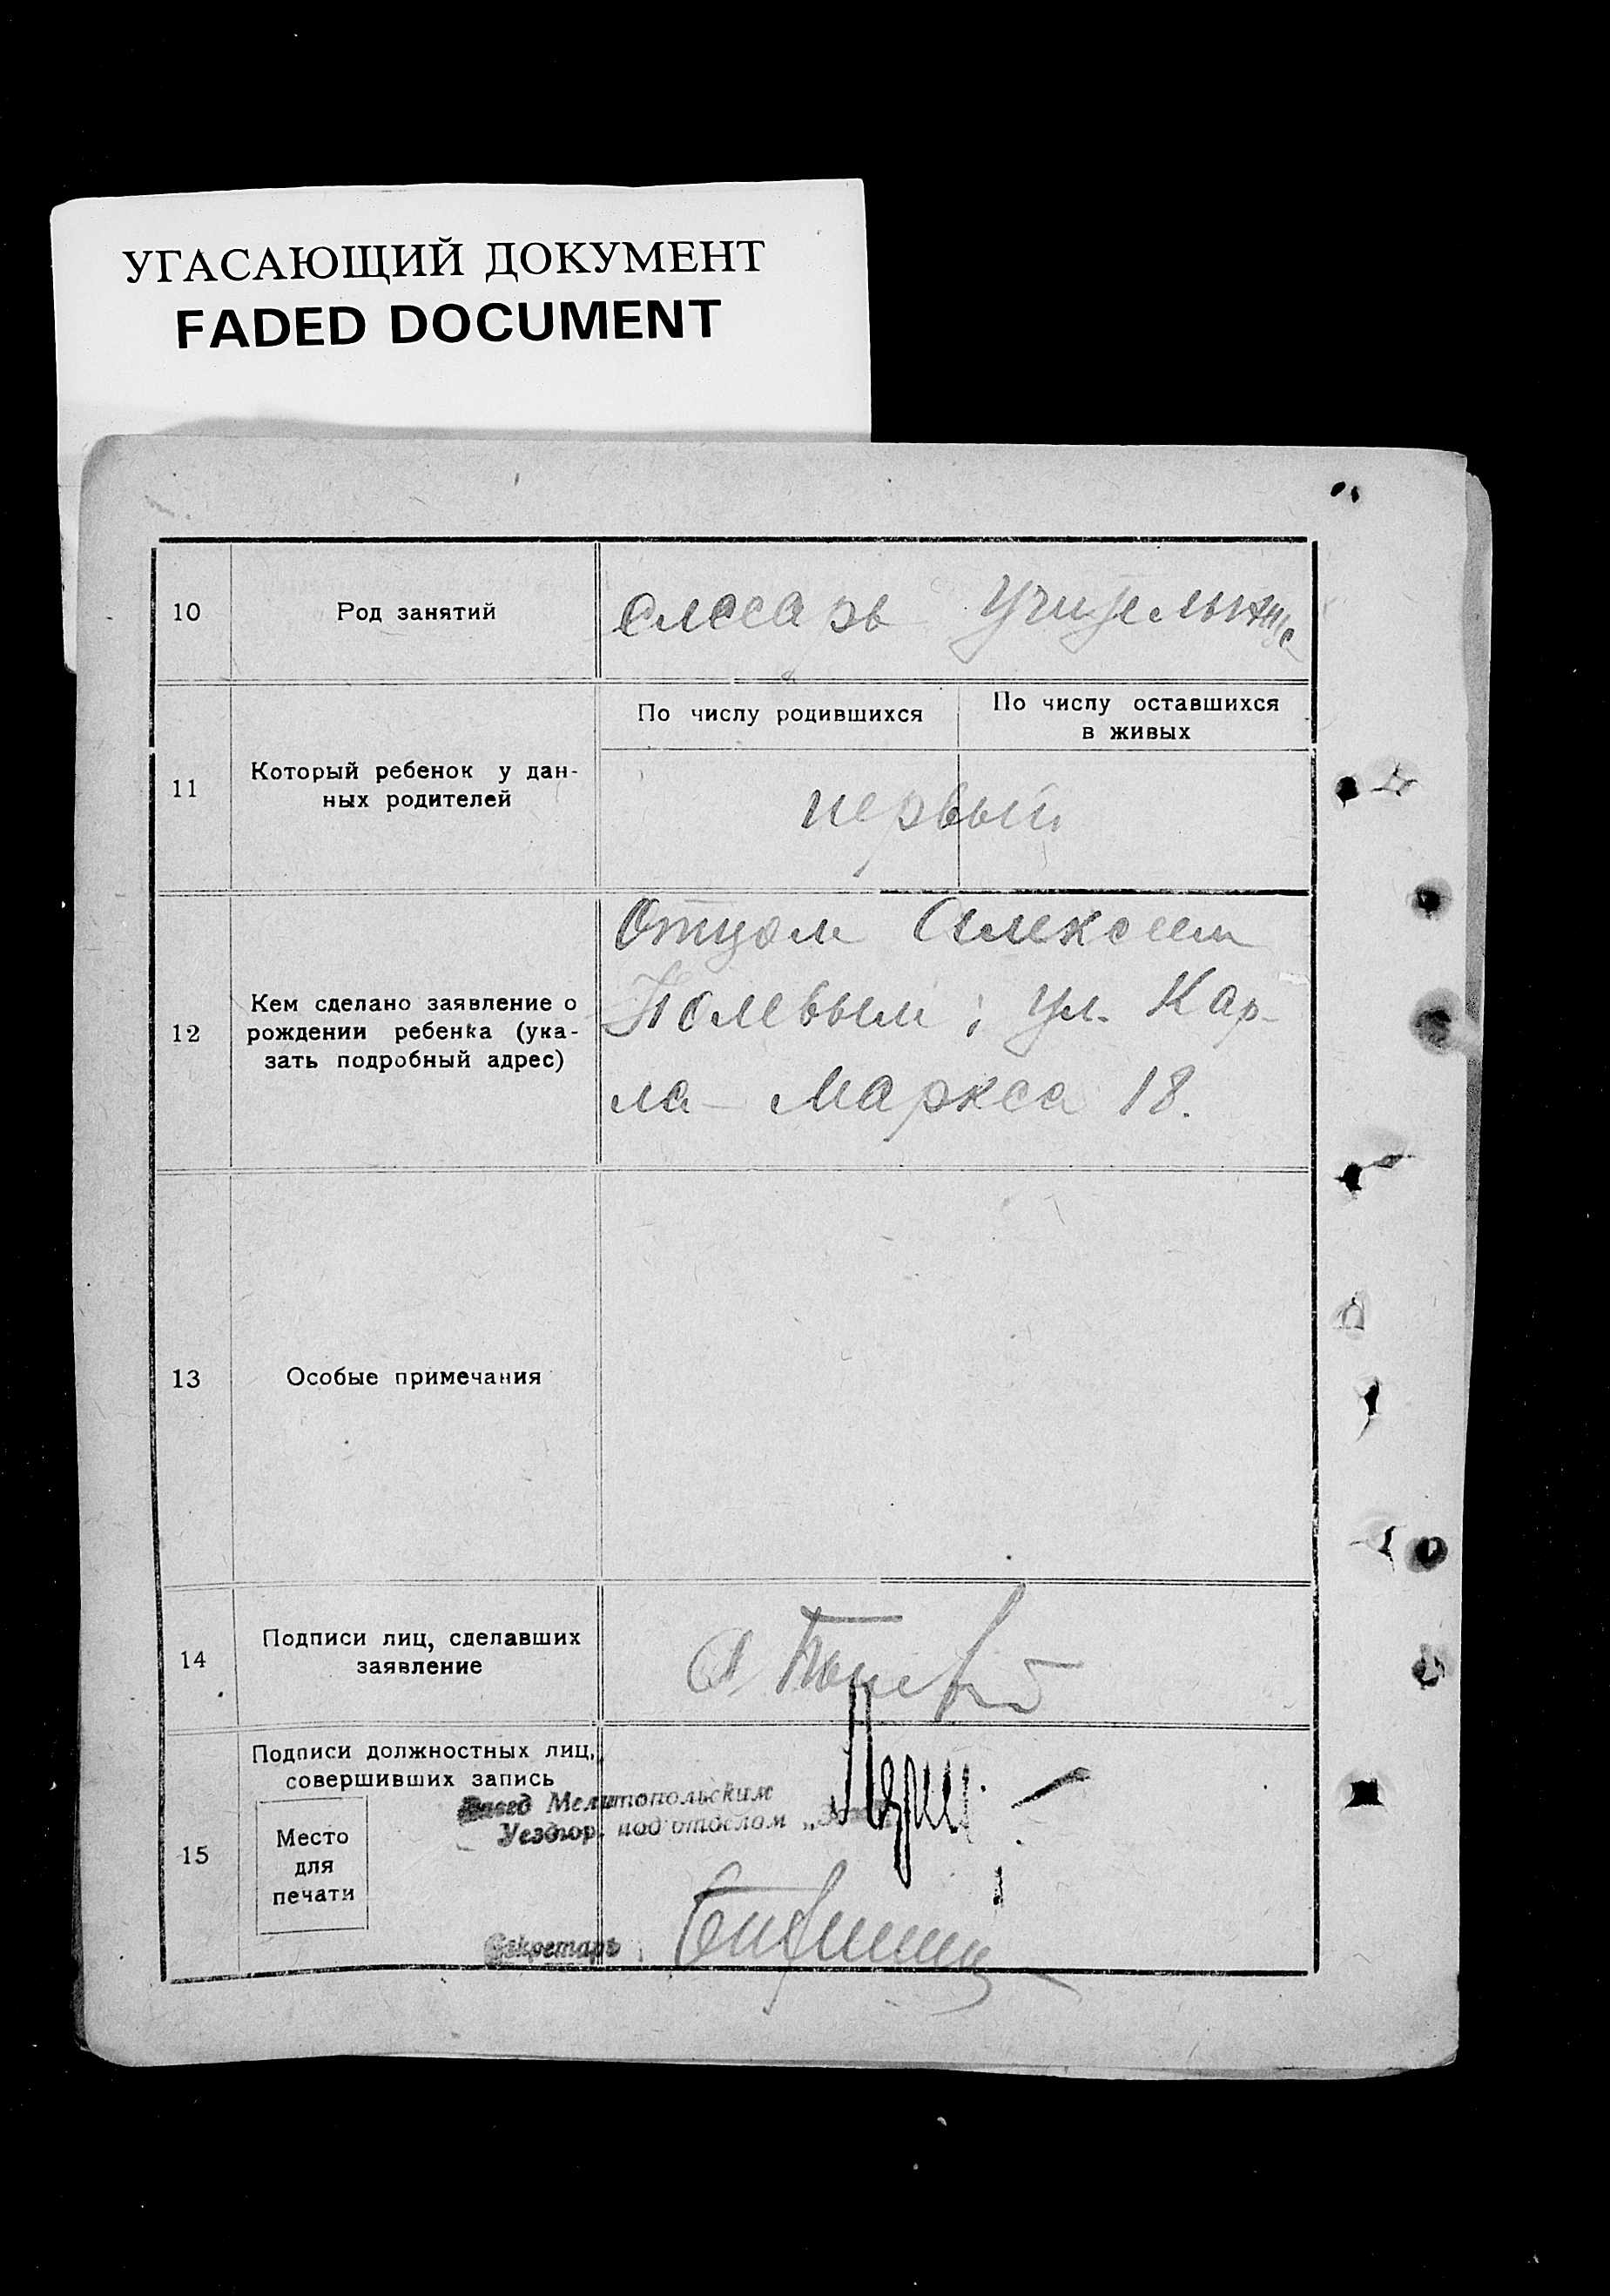 УГАСАЮЩИЙ ДОКУМЕНТ
FADED DOCUMENT
10 Род занятий слесарь
11 Который ребенок у дан-
ных родителей
По числу родившихся
По числу оставшихся
в живых
первый
12 Кем сделано заявление о
рождении ребенка (ука-
зать подробный адрес)
Отцом Алексеем
Полевым; ул. Кар-
ла Маркса 18.
13 Особые примечания
14 Подписи лиц, сделавших
заявление
А. Полевой
15 Подписи должностных лиц,
совершивших запись
Место
для
печати
Завед Мелитопольским
Уездгор. под'отделом
Секретарь